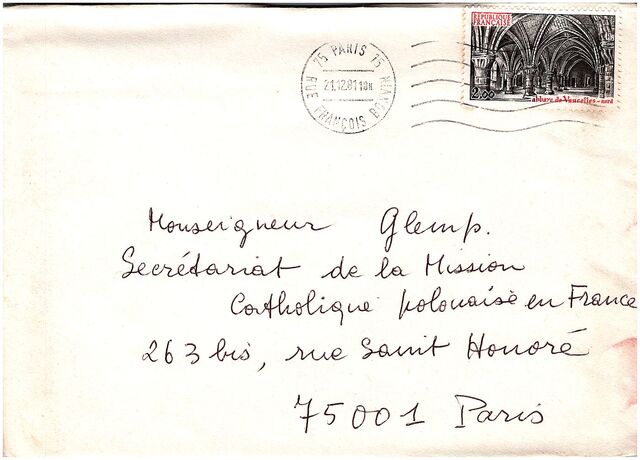 75 PARIS 75
21.12.81 18H
RUE FRANÇOIS BONVIN
REPUBLIQUE
FRANÇAISE
2,00
abbaye de Vaucelles - nord
Monseigneur Glemp.
Secrétariat de la Mission
Catholique polonaise en France
263 bis, rue Saint Honoré
75001 Paris